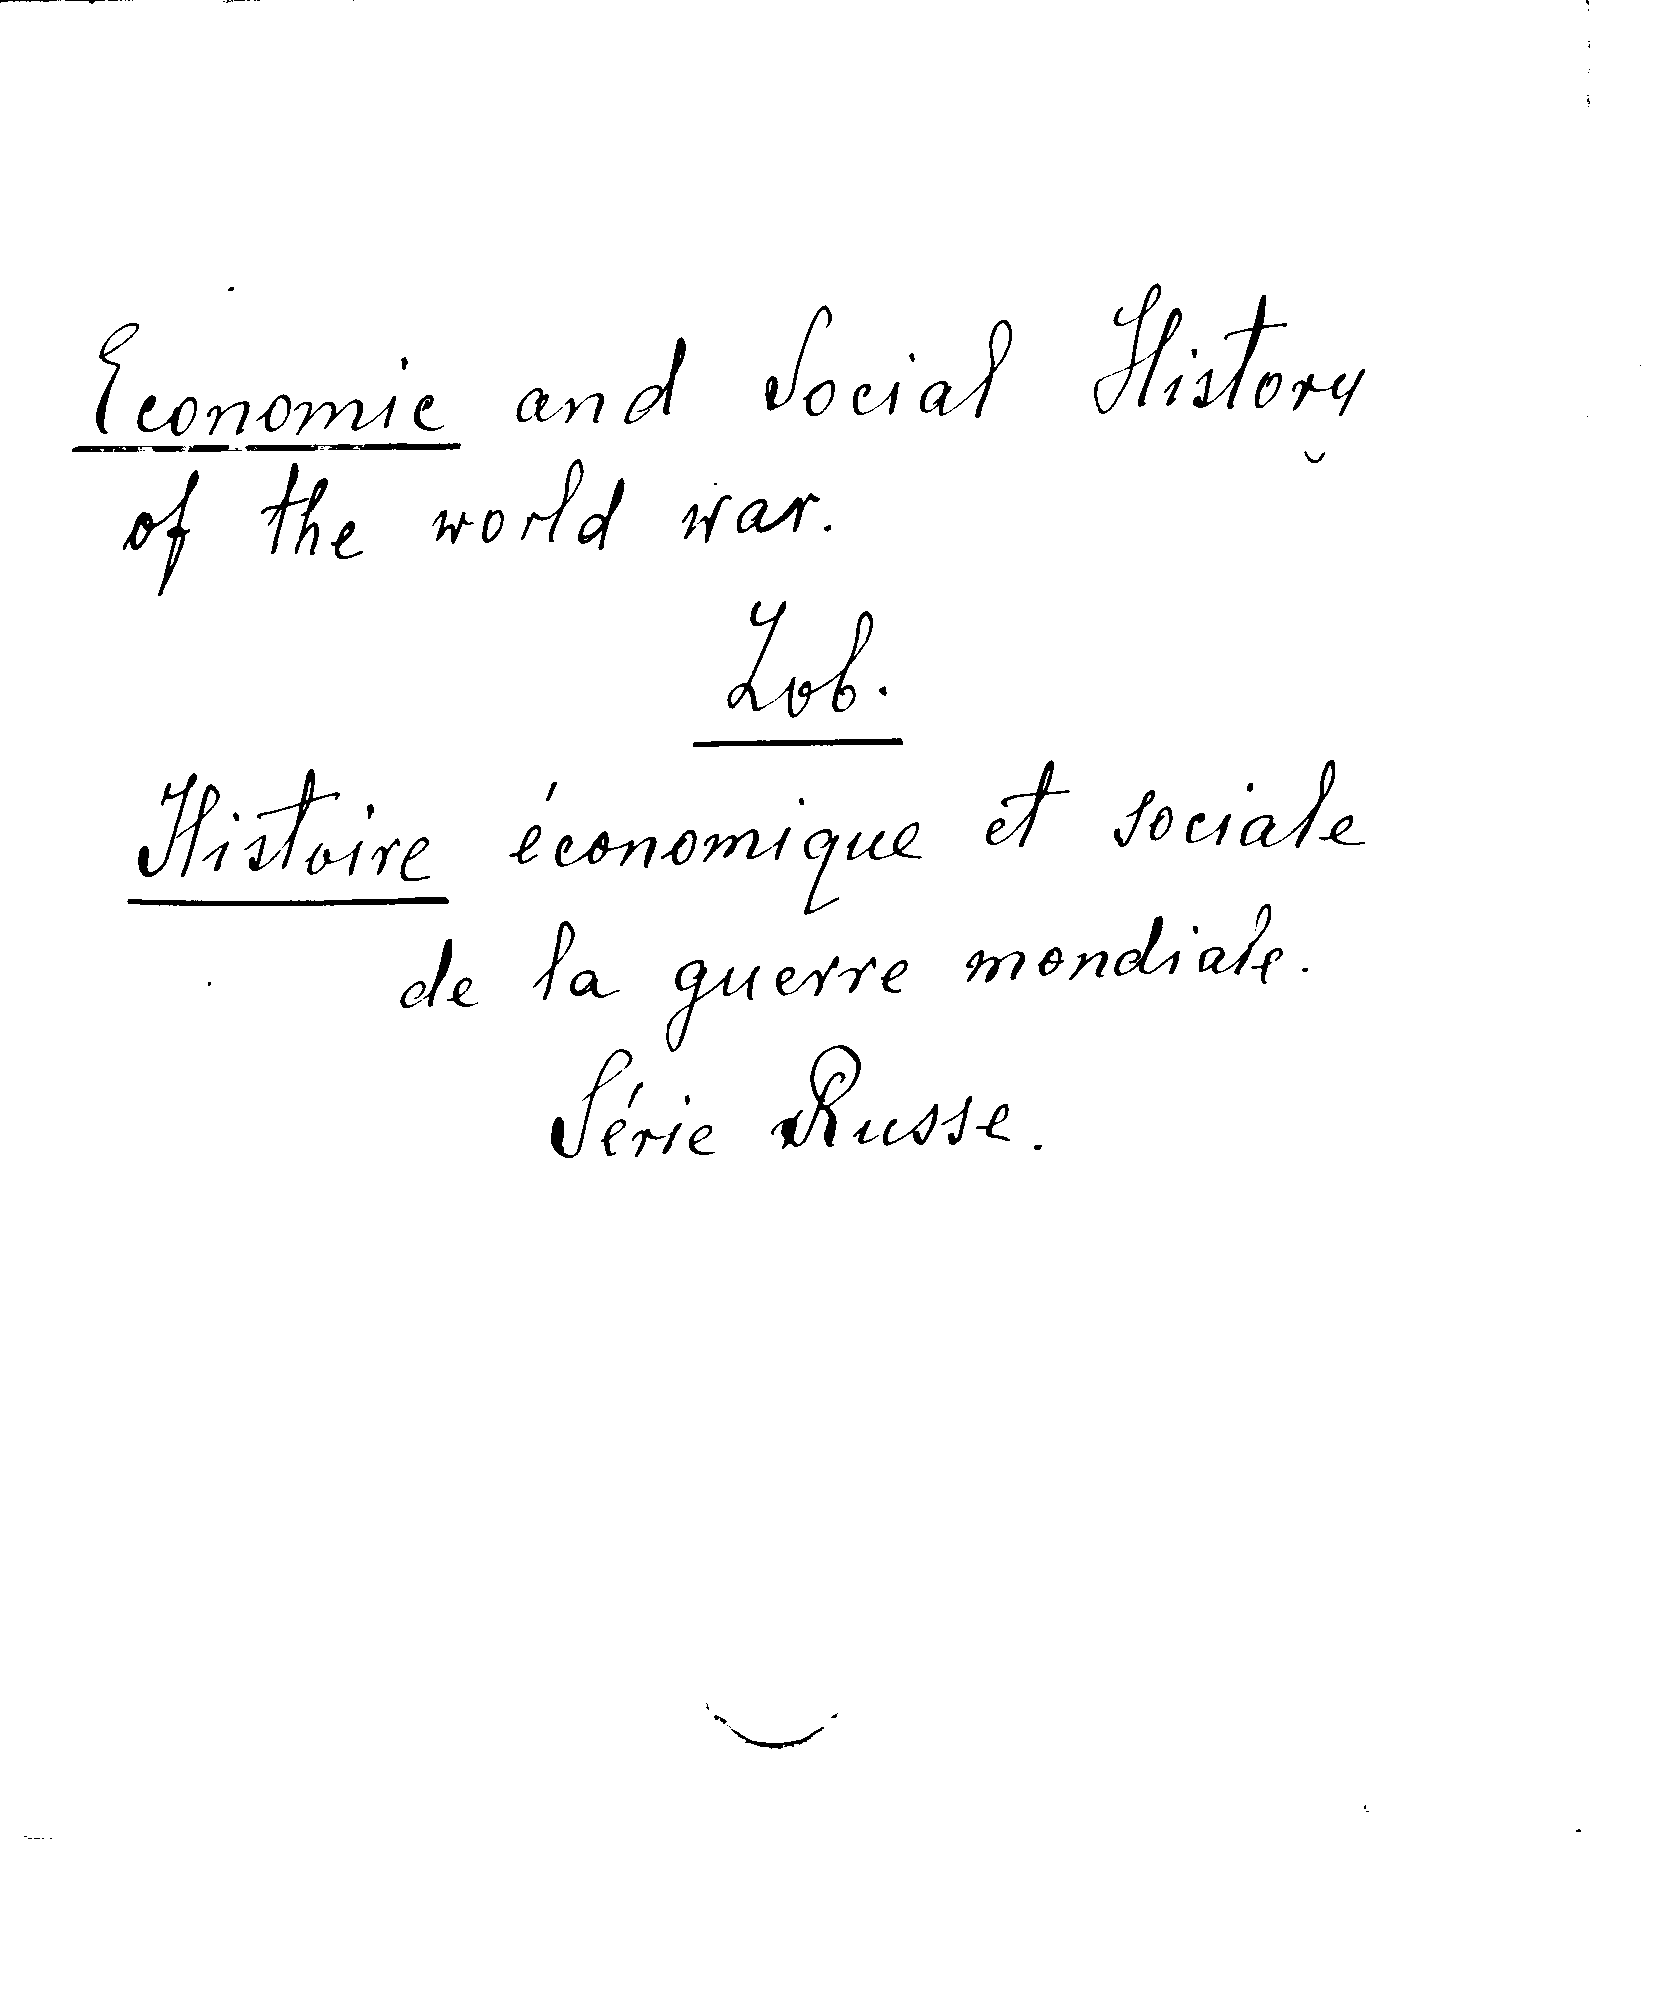 Economic and Social History
of the world war.
Zob.
Histoire économique et sociale
de la guerre mondiale.
Série Russe.